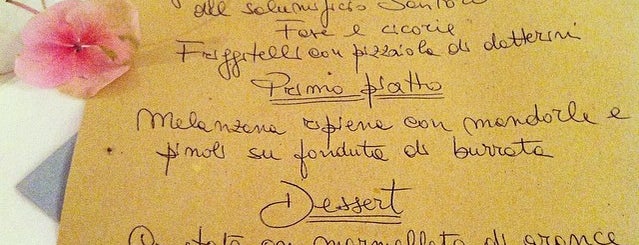 del salumificio Santoro
Fave e cicorie
Friggitelli con pizzaiola di datterini
Primo piatto
Melanzana ripiena con mandorle e
pinoli su fonduta di burrata
Dessert
con marmellata di arance